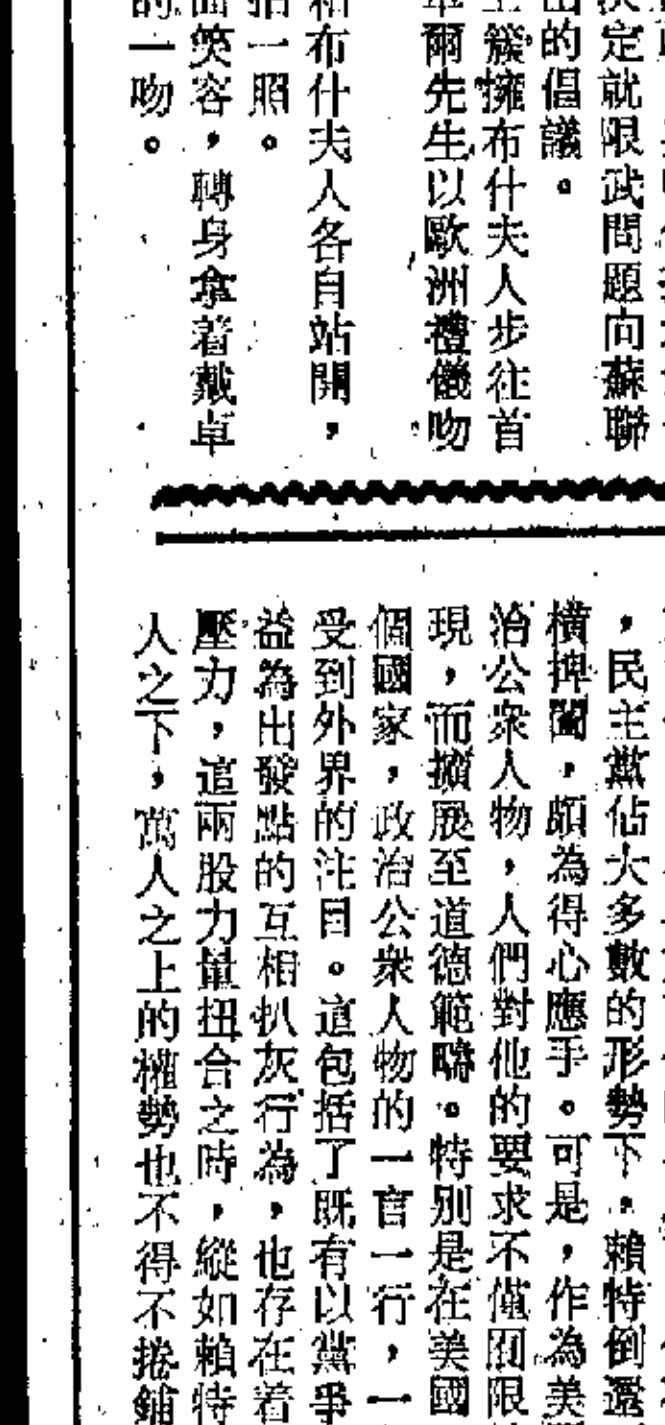 決定就限武問題向蘇聯
出的倡議。
簇擁布什夫人步往首
卓爾先生以歐洲禮儀吻
和布什夫人各自站開，
拍一照。
面笑容，轉身拿着戴卓
的一吻。
，民主黨佔大多數的形勢下，賴特倒還
橫捭闔，頗為得心應手。可是，作為美
治公衆人物，人們對他的要求不僅囿限
現，而擴展至道德範疇。特別是在美國
個國家，政治公衆人物的一言一行，一
受到外界的注目。這包括了既有以黨爭
益為出發點的互相扒灰行為，也存在着
壓力，這兩股力量扭合之時，縱如賴特
人之下，萬人之上的權勢也不得不捲鋪